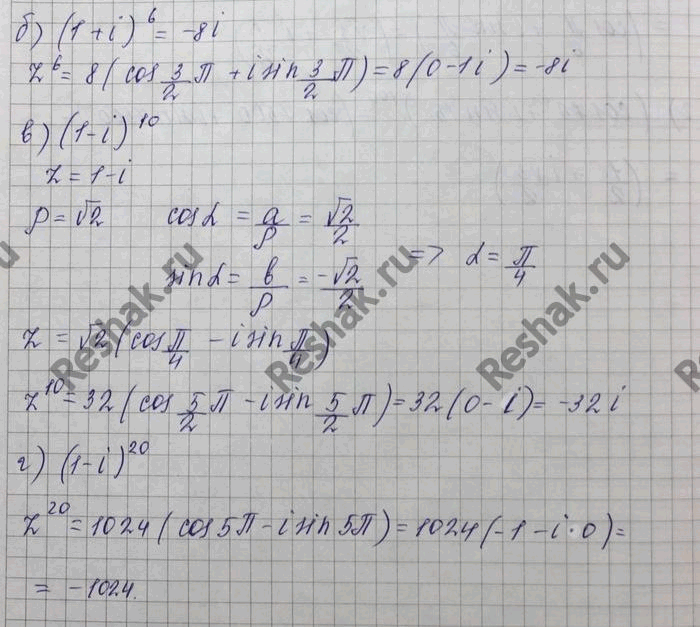 б) (1+i)^6 = -8i
z^6 = 8(cos 3/2 π + i sin 3/2 π) = 8(0-1i) = -8i
в) (1-i)^10
z = 1-i
ρ = √2   cos α = a/ρ = √2/2
sin α = b/ρ = -√2/2   => α = π/4
z = √2(cos π/4 - i sin π/4)
z^10 = 32(cos 5/2 π - i sin 5/2 π) = 32(0-i) = -32i
г) (1-i)^20
z^20 = 1024(cos 5π - i sin 5π) = 1024(-1-i·0) =
= -1024.
Reshak.ru
Reshak.ru
Reshak.ru